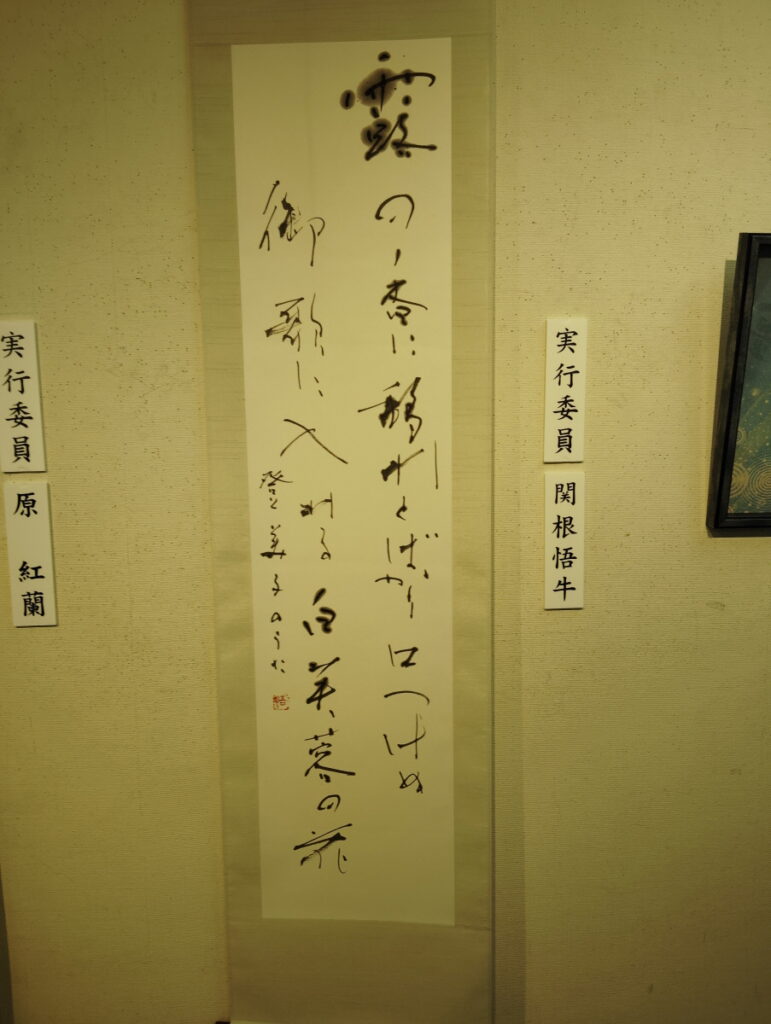 露の香に移れとばかり口つけぬ
御歌に入れる白芙蓉の花
登美子のうた
実行委員
関根悟牛
実行委員
原 紅蘭